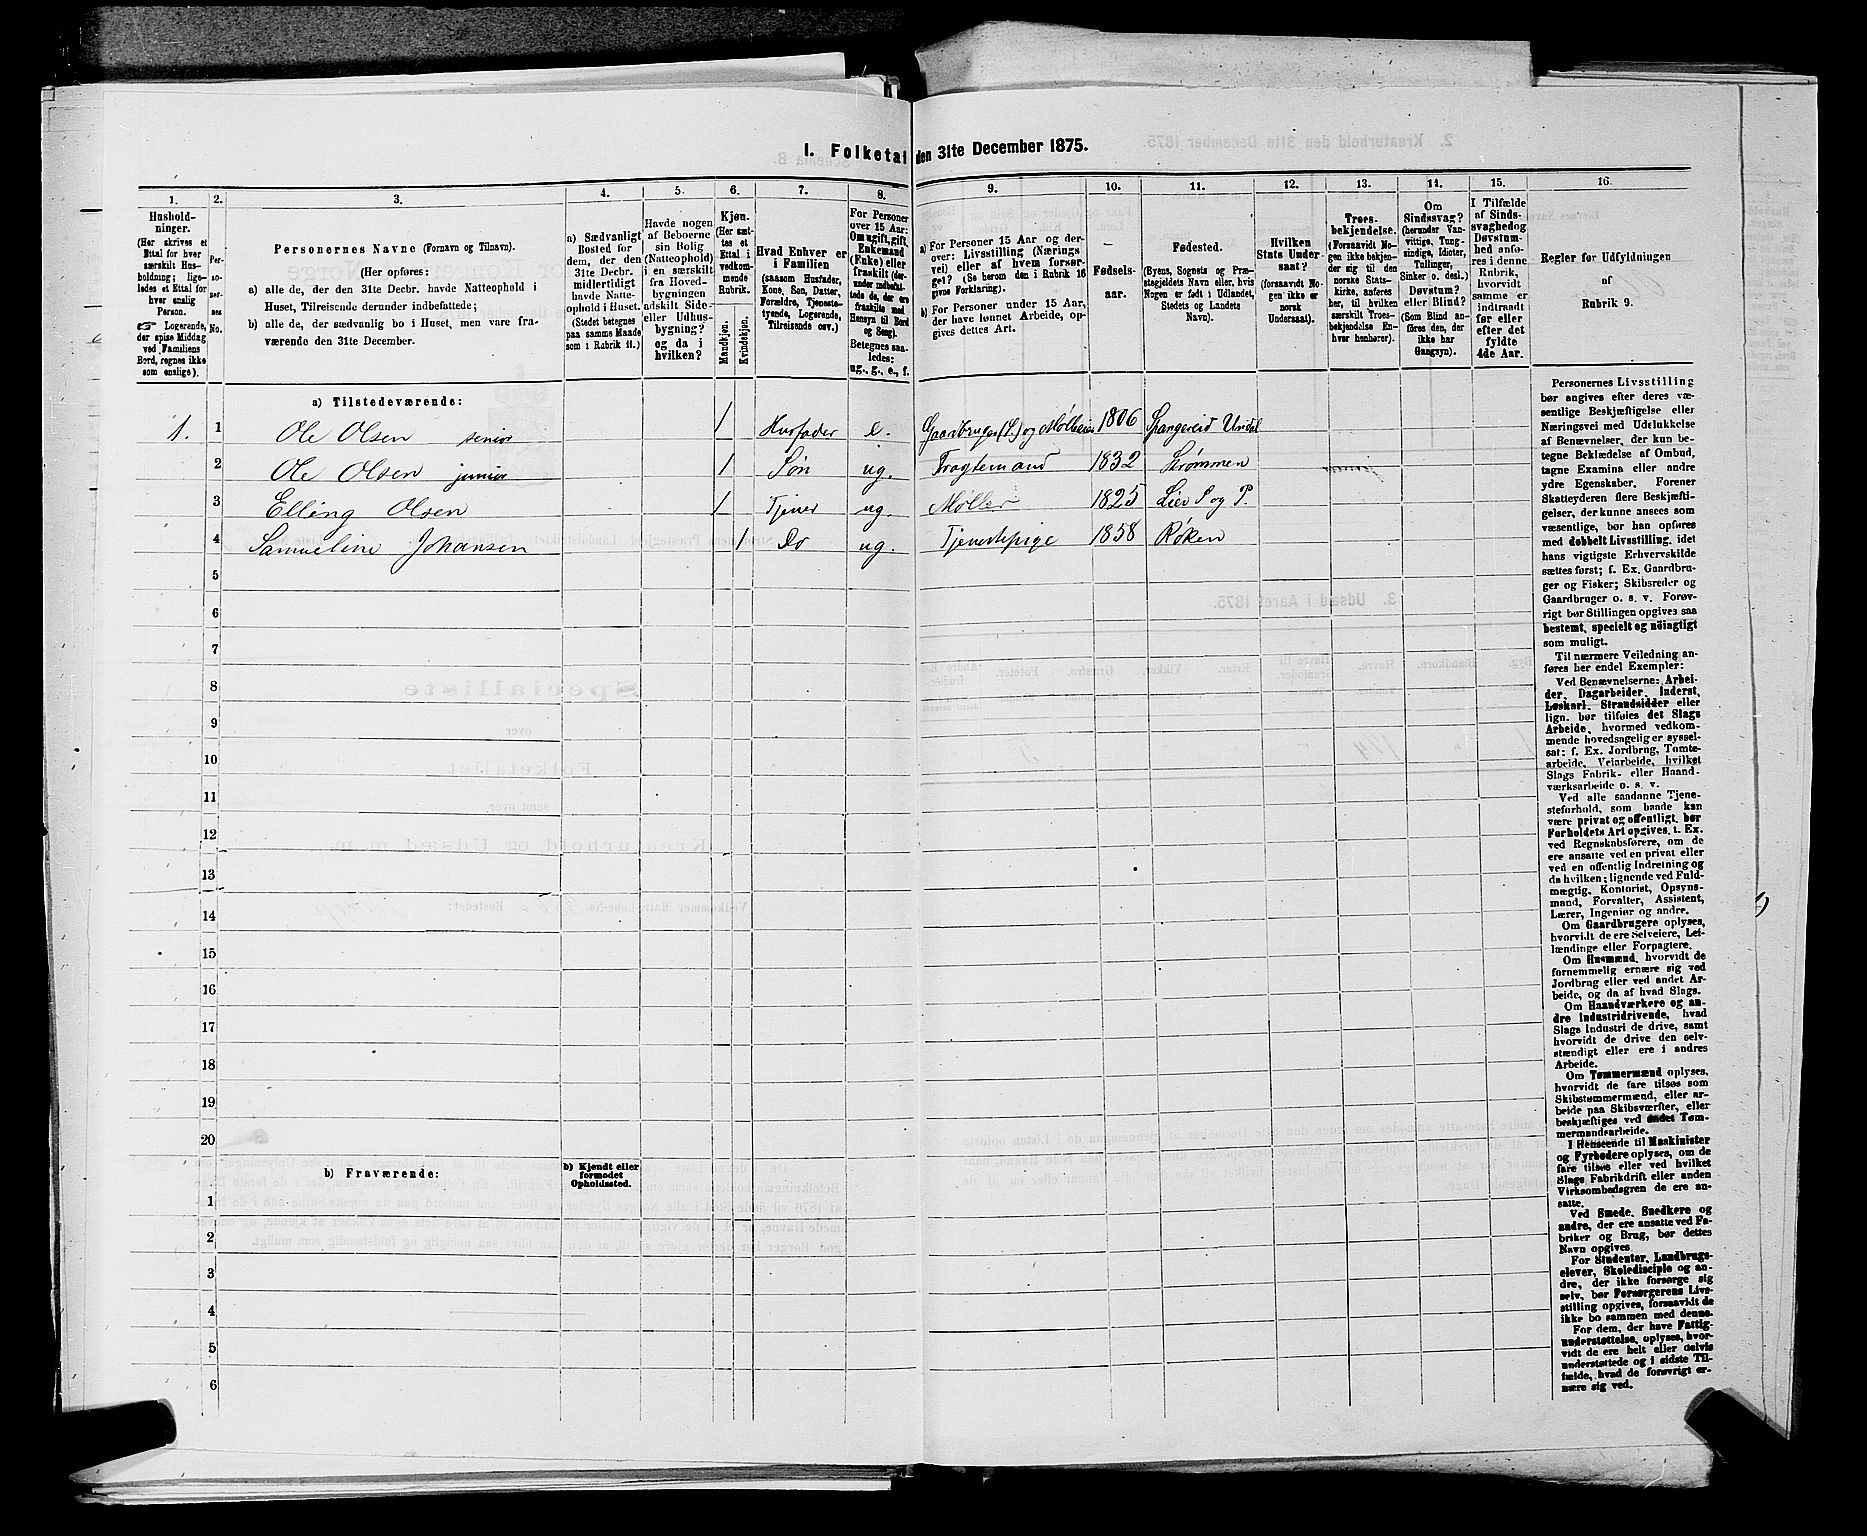 I. Folketal den 31te December 1875.
1. 2. 3. 4. 5. 6. 7. 8. 9. 10. 11. 12. 13. 14. 15. 16.
Hushold-
ninger.
(Her skrives et
Ettal for hver
særskilt Hus-
holdning; lige-
ledes et Ettal for
hver enslig
Person.
☞ Logerende,
der spise Middag
ved Familiens
Bord, regnes ikke
som enslige).
Per-
so-
ner-
nes
No.
Personernes Navne (Fornavn og Tilnavn).
(Her opføres:
a) alle de, der den 31te Decbr. havde Natteophold i
Huset, Tilreisende derunder indbefattede;
b) alle de, der sædvanlig bo i Huset, men vare fra-
værende den 31te December.
a) Sædvanligt
Bosted for
dem, der den
31te Decbr.
midlertidigt
havde Natte-
ophold i Huset.
(Stedet betegnes
paa samme Maade
som i Rubrik 11.)
Havde nogen
af Beboerne
sin Bolig
(Natteophold)
i en særskilt
fra Hoved-
bygningen
adskilt Side-
eller Udhus-
bygning?
og da i
hvilken?
Kjøn.
(Her sæt-
tes et
Ettal i
vedkom-
mende
Rubrik.
Mandkjøn.
Kvindekjøn.
Hvad Enhver er
i Familien
(saasom Husfader,
Kone, Søn, Datter,
Forældre, Tjeneste-
tyende, Logerende,
Tilreisende osv.)
For Personer
over 15 Aar:
Om ugift, gift,
Enkemand
(Enke) eller
fraskilt (der-
under indbefat-
tede de, der ere
fraskilte med
Hensyn til Bord
og Seng).
Betegnes saa-
ledes:
ug., g., e., f.
a) For Personer 15 Aar og der-
over: Livsstilling (Nærings-
vei) eller af hvem forsør-
get? (Se herom den i Rubrik 16
givne Forklaring).
b) For Personer under 15 Aar,
der have lønnet Arbeide, op-
gives dettes Art.
Fødsels-
aar.
Fødested.
(Byens, Sognets og Præ-
stegjeldets Navn eller, hvis
Nogen er født i Udlandet,
Stedets og Landets
Navn).
Hvilken
Stats Under-
saat?
(forsaavidt No-
gen ikke er
norsk
Undersaat).
Troes-
bekjendelse.
(Forsaavidt No-
gen ikke bekjen-
der sig til den
norske Stats-
kirke, anføres
her, til hvilken
særskilt Troes-
bekjendelse En-
hver henhører).
Om
Sindssvag?
(herunder Van-
vittige, Tung-
sindige, Idioter,
Tullinger,
Sinker o. desl.)
Døvstum?
eller Blind?
(Som Blind an-
føres den, der
ikke har
Gangsyn).
I Tilfælde
af Sinds-
svaghed og
Døvstum-
hed anfø-
res i denne
Rubrik,
hvorvidt
samme er
indtraadt
før eller
efter det
fyldte
4de Aar.
Regler for Udfyldningen
af
Rubrik 9.
a) Tilstedeværende:
1. 1 Ole Olsen senior 1 Husfader e. Gaardbruger (S.) og Mølleeier 1806 Spangereid Undal
2 Ole Olsen junior 1 Søn ug. Fragtemand 1832 Strømmen
3 Elling Olsen 1 Tjener ug. Møller 1825 Lier S og P.
4 Samueline Johansen 1 Do ug. Tjenestepige 1858 Røken
5
6
7
8
9
10
11
12
13
14
15
16
17
18
19
20
b) Fraværende:
b) Kjendt eller
formodet
Opholdssted.
1
2
3
4
5
6
Personernes Livsstilling
bør angives efter deres væ-
sentlige Beskjæftigelse eller
Næringsvei med Udelukkelse
af Benævnelser, der kun be-
tegne Beklædelse af Ombud,
tagne Examina eller andre
ydre Egenskaber. Forener
Skatteyderen flere Beskjæfti-
gelser, der kunne ansees som
væsentlige, bør han opføres
med dobbelt Livsstilling, idet
hans vigtigste Erhvervskilde
sættes først; f. Ex. Gaardbru-
ger og Fisker; Skibsreder og
Gaardbruger o. s. v. Forøv-
rigt bør Stillingen opgives saa
bestemt, specielt og nöiagtigt
som muligt.
Til nærmere Veiledning an-
føres her endel Exempler:
Ved Benævnelserne: Arbei-
der, Dagarbeider, Inderst,
Løskarl, Strandsidder eller
lign. bør tilføies det Slags
Arbeide, hvormed vedkom-
mende hovedsagelig er syssel-
sat; f. Ex. Jordbrug, Tomte-
arbeide, Veiarbeide, hvilket
Slags Fabrik- eller Haand-
værksarbeide o. s. v.
Ved alle saadanne Tjene-
steforhold, som baade kan
være privat og offentligt, bør
Forholdets Art opgives, f. Ex.
ved Regnskabsførere, om de
ere ansatte ved en privat eller
ved en offentlig Indretning og
da hvilken; lignende ved Fuld-
mægtig, Kontorist, Opsyns-
mand, Forvalter, Assistent,
Lærer, Ingeniør og andre.
Om Gaardbrugere oplyses,
hvorvidt de ere Selveiere, Lei-
lændinge eller Forpagtere.
Om Husmænd, hvorvidt de
fornemmelig ernære sig ved
Jordbrug eller ved andet Ar-
beide, og da af hvad Slags.
Om Haandværkere og an-
dre Industridrivende, hvad
Slags Industri de drive, samt
hvorvidt de drive den selv-
stændigt eller ere i andres
Arbeide.
Om Tømmermænd oplyses,
hvorvidt de fare tilsøs som
Skibstømmermænd, eller ar-
beide paa Skibsværfter, eller
beskjæftiges ved andet Tøm-
mermandsarbeide.
I Henseende til Maskinister
og Fyrbødere oplyses, om de
fare tilsøs eller ved hvilket
Slags Fabrikdrift eller anden
Virksomhedsgren de ere an-
satte.
Ved Smede, Snedkere og
andre, der ere ansatte ved Fa-
briker og Brug, bør dettes
Navn opgives
For Studenter, Landbrugs-
elever, Skoledisciple og an-
dre, der ikke forsørge sig
selv, bør Forsørgerens Livs-
stilling opgives, forsaavidt de
ikke bo sammen med denne.
For dem, der have Fattig-
understøttelse, oplyses, hvor-
vidt de ere helt eller delvis
understøttede og i sidste Til-
fælde, hvad de forøvrigt er-
nære sig ved.